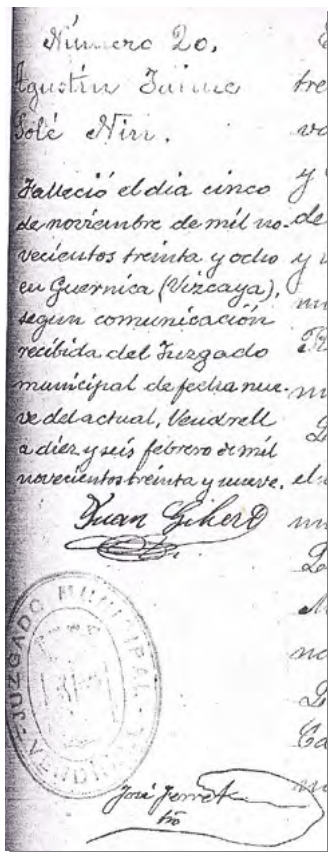 Número 20.
Agustín Jaime
Solé Nin.
Falleció el dia cinco
de noviembre de mil no-
vecientos treinta y ocho
en Guernica (Vizcaya),
segun comunicación
recibida del Juzgado
municipal de fecha nue-
ve del actual, Vendrell
a diez y seis febrero de mil
novecientos treinta y nueve.
Juan Gibert
JUZGADO MUNICIPAL
José Ferret
tre
y
de
y